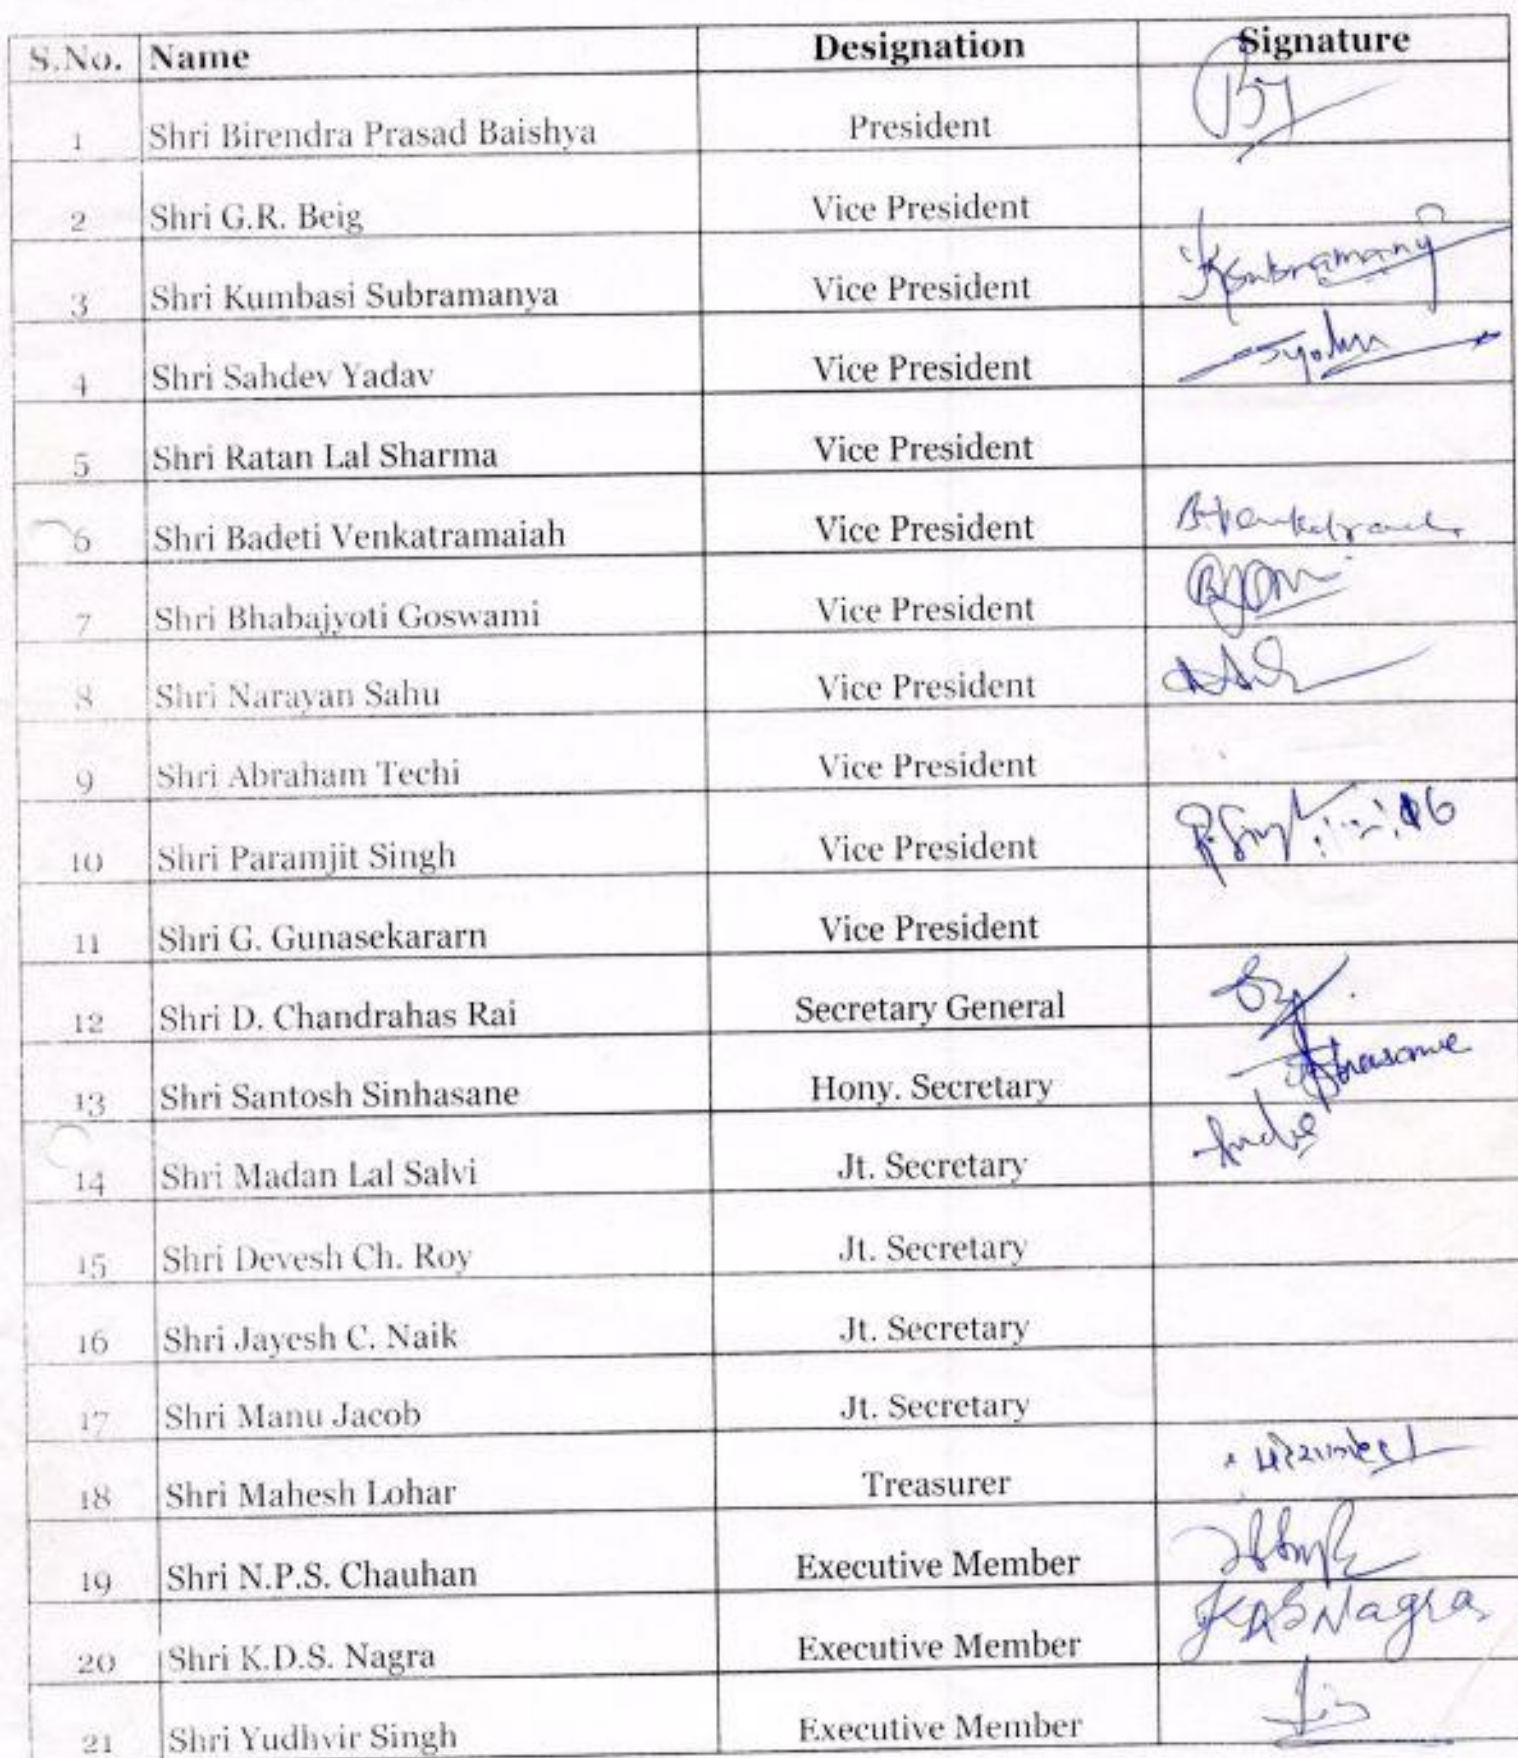 S.No. Name Designation Signature
1 Shri Birendra Prasad Baishya President
2 Shri G.R. Beig Vice President
3 Shri Kumbasi Subramanya Vice President KSubramany
4 Shri Sahdev Yadav Vice President
5 Shri Ratan Lal Sharma Vice President
6 Shri Badeti Venkatramaiah Vice President
7 Shri Bhabajyoti Goswami Vice President
8 Shri Narayan Sahu Vice President
9 Shri Abraham Techi Vice President
10 Shri Paramjit Singh Vice President P. Singh
11 Shri G. Gunasekararn Vice President
12 Shri D. Chandrahas Rai Secretary General
13 Shri Santosh Sinhasane Hony. Secretary
14 Shri Madan Lal Salvi Jt. Secretary
15 Shri Devesh Ch. Roy Jt. Secretary
16 Shri Jayesh C. Naik Jt. Secretary
17 Shri Manu Jacob Jt. Secretary
18 Shri Mahesh Lohar Treasurer
19 Shri N.P.S. Chauhan Executive Member
20 Shri K.D.S. Nagra Executive Member KDSNagra
21 Shri Yudhvir Singh Executive Member